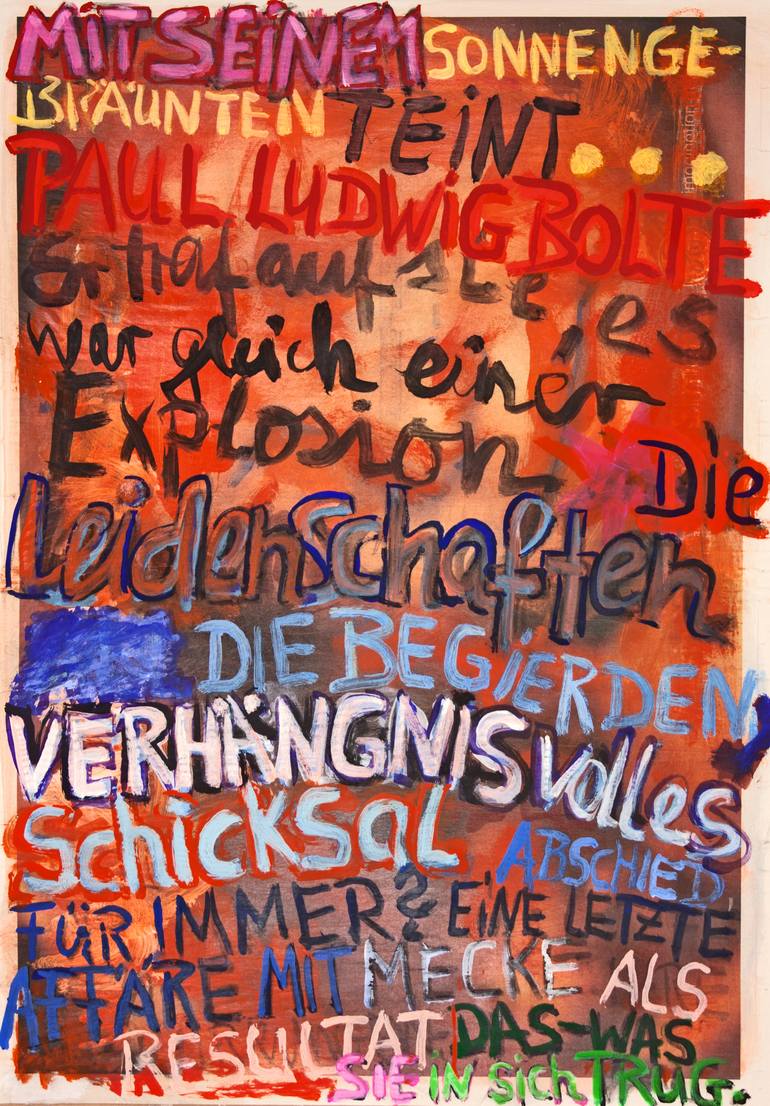 MiT SEiNEM SONNENGE-
BRÄUNTEN TEiNT...
PAUL LUDWiG BOLTE
Er traf auf sie, es
war gleich einer
Explosion Die
Leidenschaften
DIE BEGiERDEN,
VERHÄNGNISvolles
SchickSal ABSCHiED
FÜR IMMER? EiNE LETZTE
AFFÄRE MIT MECKE ALS
RESULTAT DAS-WAS
SiE iN sich TRUG.